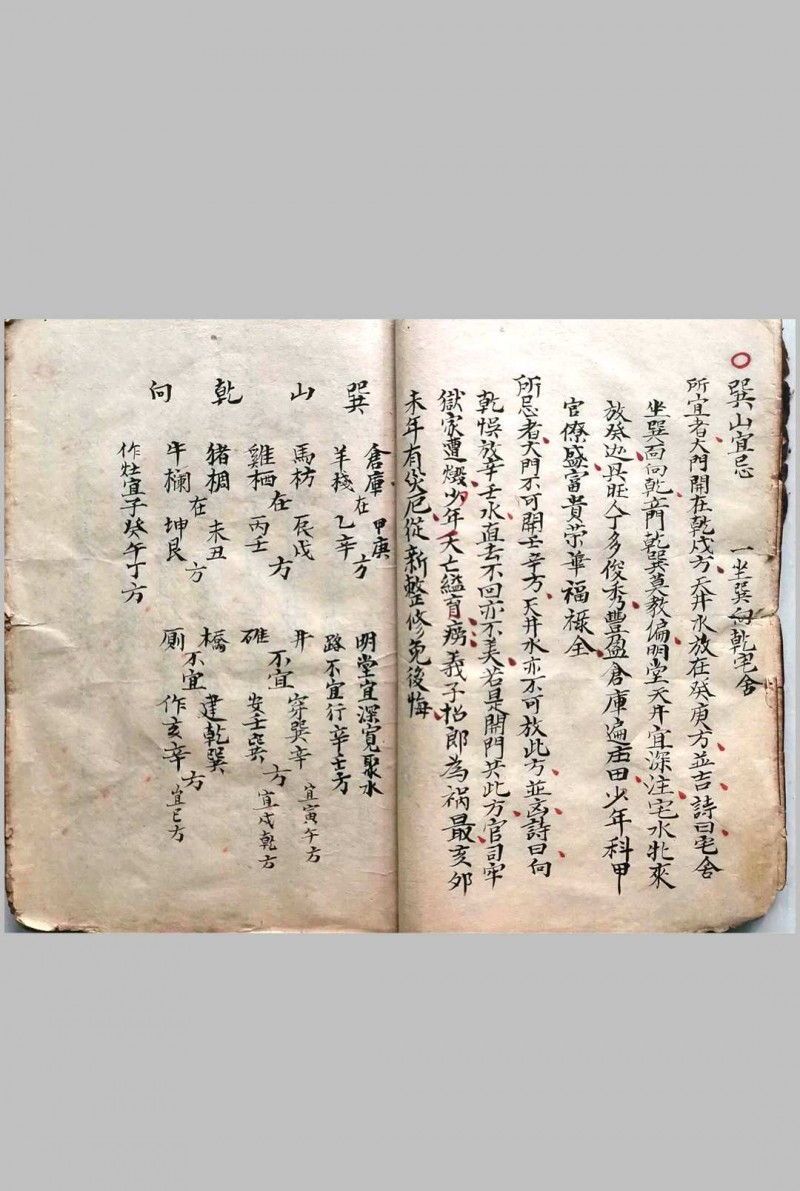 巽山宜忌 一坐巽向乾宅舍
所宜者大門開在乾戍方天井水放在癸庚方並吉詩曰宅舍
坐巽面向乾立門乾巽莫教偏明堂天井宜深注宅水北來
放癸边具旺人丁多俊秀豐盈倉庫遍庄田少年科甲
官僚盛富貴荣華福祿全
所忌者大門不可開壬辛方天井水亦不可放此方並凶詩曰向
乾悮放辛壬水直去不回亦不美若是開門共此方官司牢
獄家遭燬少年夭亡縊盲癆義子招郎為禍最亥夘
未年有灾厄從新整修免後悔
巽山乾向
倉庫在甲庚方
羊棧乙辛
馬枋在辰戌方
雞栖丙壬
猪椆在未丑方
牛欄坤艮
作灶宜子癸午丁方
明堂宜深寬聚水
路不宜行辛壬方
井不宜穿巽辛方宜寅午方
碓安壬巽宜戍乾方
橋不宜建乾巽方
厠作亥辛宜巳方